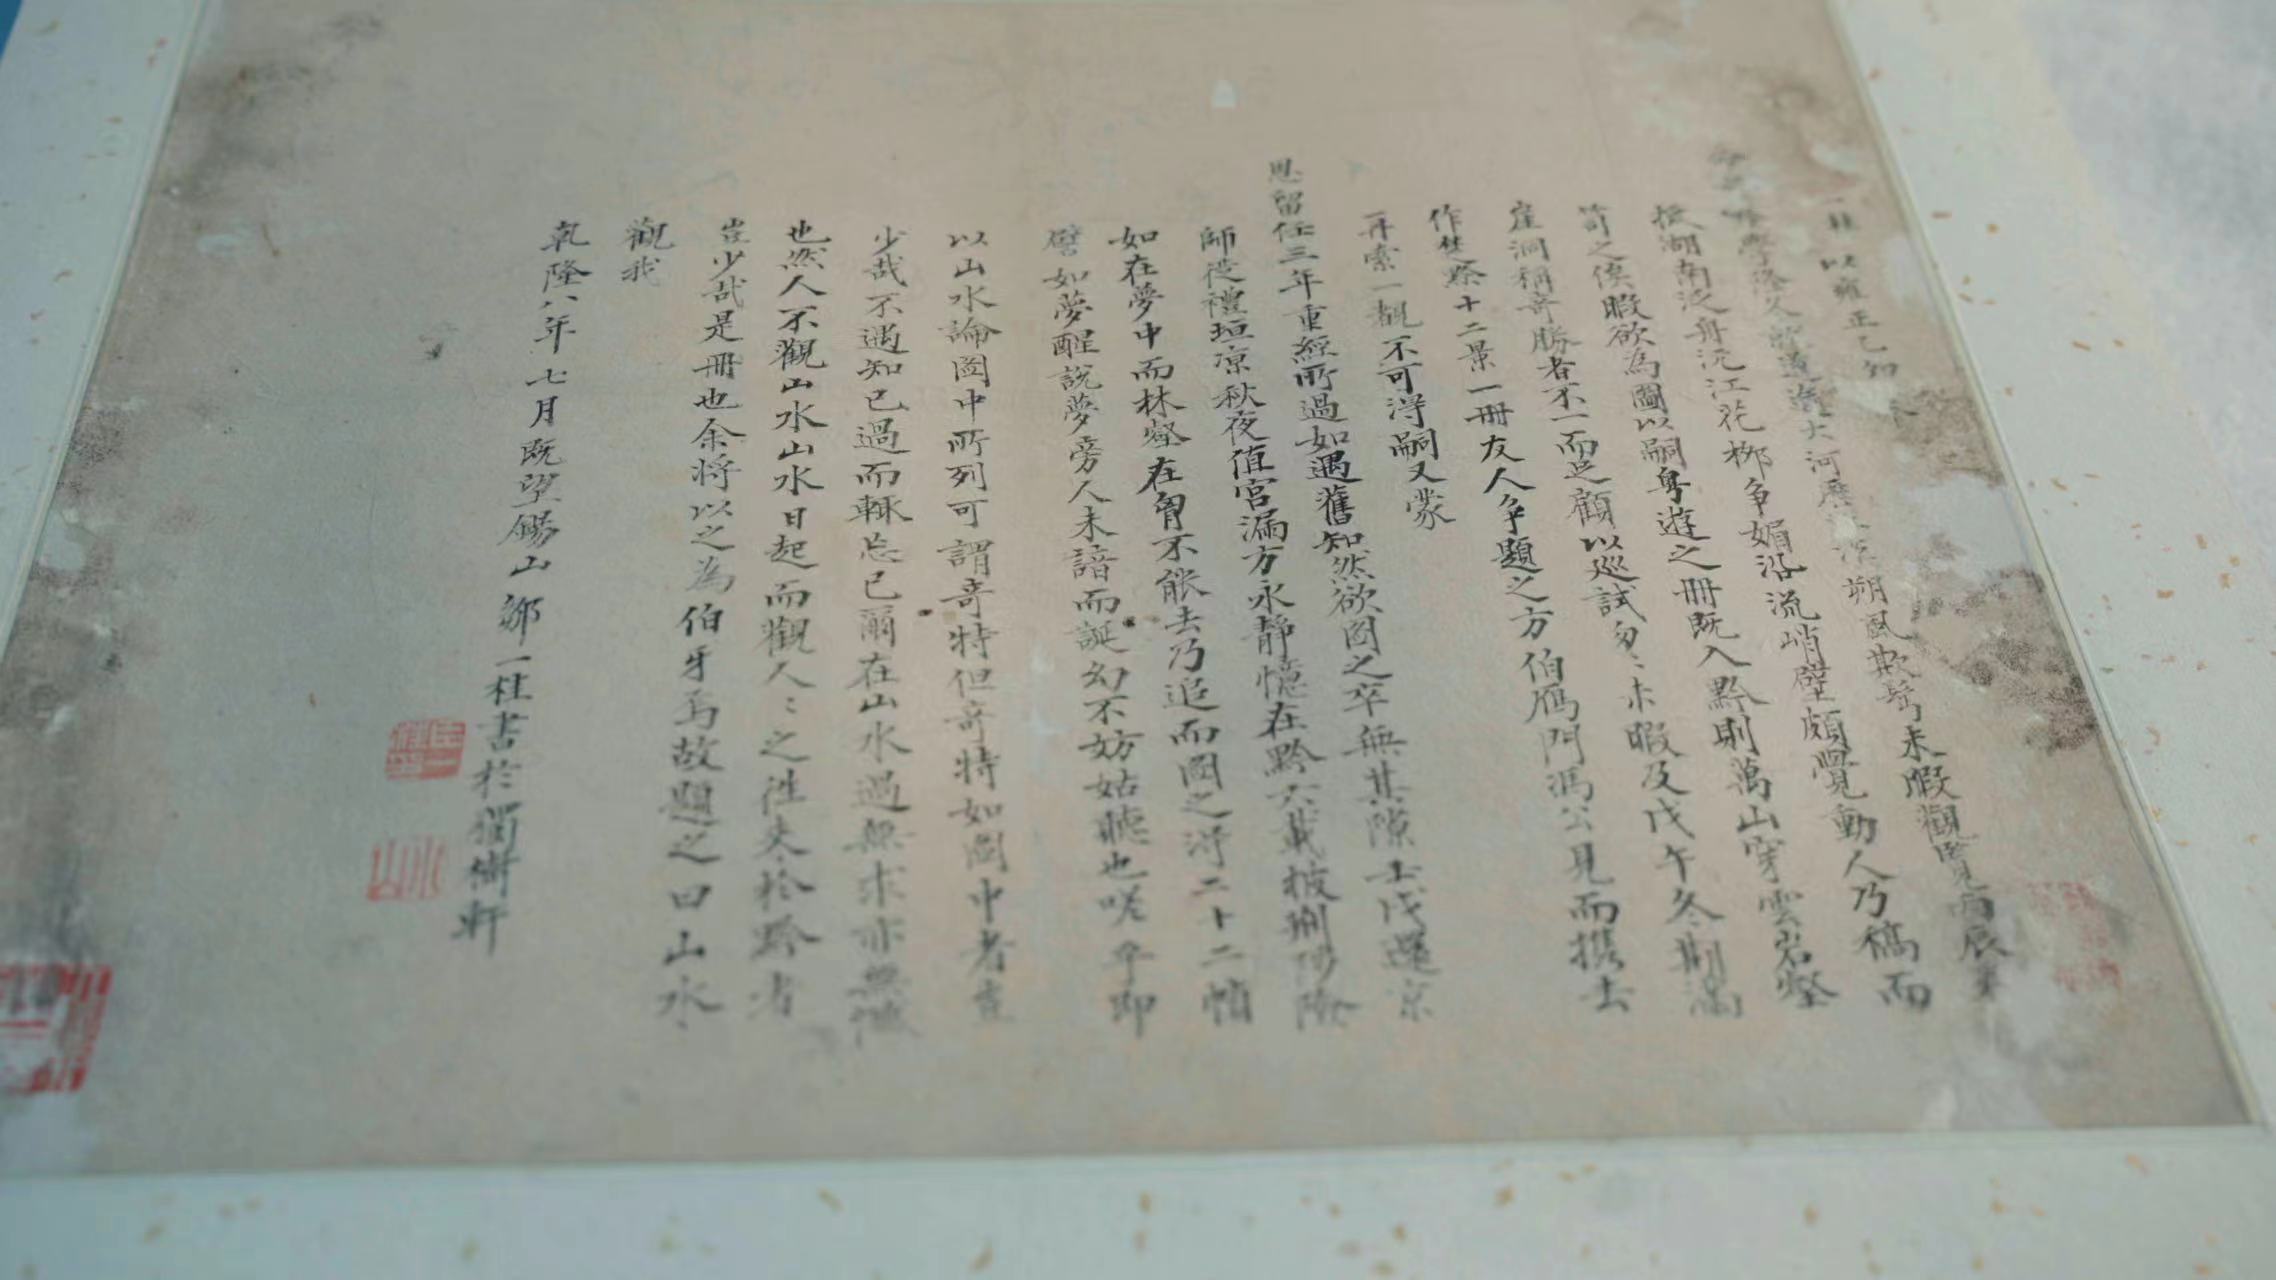 一桂以雍正乙卯冬
學 大河 朔風欺 未暇觀覽丙辰春
抵湖南泛舟沅江花柳争媚沿流峭壁頗覺動人乃稿而
笥之俟暇欲為圖以嗣粤遊之冊既入黔則萬山穿雲岩壑
崖洞稱竒勝者不一而足顧以巡試匆〻未暇及戊午冬期滿
作楚黔十二景一冊友人争題之方伯鴈門馮公見而携去
再索一觀不可得嗣又蒙
恩留任三年重經所過如遇舊知然欲图之卒無其隙壬戌還京
師從禮垣凉秋夜值宮漏方永静憶在黔六載披荆涉險
如在夢中而林壑在胷不能去乃追而圖之得二十二幀
譬如夢醒說夢旁人未諳而誕幻不妨姑聽也嗟乎即
以山水論圖中所列可謂竒特但竒特如圖中者豈
少哉不遇知已過而輒忘已爾在山水過無求亦無憾
也然人不觀山水山水日起而觀人〻之往来於黔者
豈少哉是冊也余将以之為伯牙焉故題之曰山水
觀我
乹隆八年七月既望錫山鄒一桂書於獨樹軒